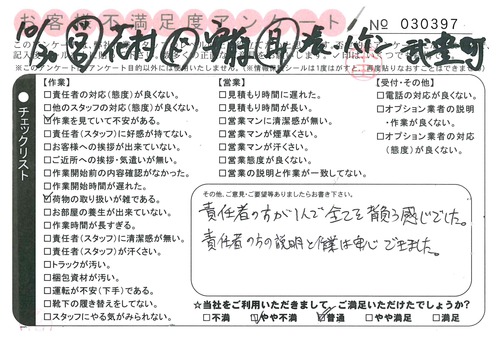 お客様不満足度アンケート
No 030397
10/30
チェックリスト
【作業】
□責任者の対応(態度)が良くない。
□他のスタッフの対応(態度)が良くない。
☑作業を見ていて不安がある。
□責任者(スタッフ)に好感が持てない。
□お客様への挨拶が出来ていない。
□ご近所への挨拶・気遣いが無い。
□作業開始前の内容確認がなかった。
□作業開始時間が遅れた。
☑荷物の取り扱いが雑である。
□お部屋の養生が出来ていない。
□作業時間が長すぎる。
□責任者(スタッフ)に清潔感が無い。
□責任者(スタッフ)が汗くさい。
□トラックが汚い。
□梱包資材が汚い。
□運転が不安(下手)である。
□靴下の履き替えをしてない。
□スタッフにやる気がみられない。
【営業】
□見積もり時間に遅れた。
□見積もり時間が長い。
□営業マンに清潔感が無い。
□営業マンが煙草くさい。
□営業マンが汗くさい。
□営業態度が良くない。
□営業の説明と作業が一致してない。
【受付・その他】
□電話の対応が良くない。
□オプション業者の説明・作業が良くない。
□オプション業者の対応(態度)が良くない。
その他、ご意見・ご要望等ありましたらお書き下さい。
責任者の方が1人で全てを背負う感じでした。
責任者の方の説明と作業は安心できました。
☆当社をご利用いただきまして、ご満足いただけたでしょうか?
□不満 ☑やや不満 ☑普通 □やや満足 □満足